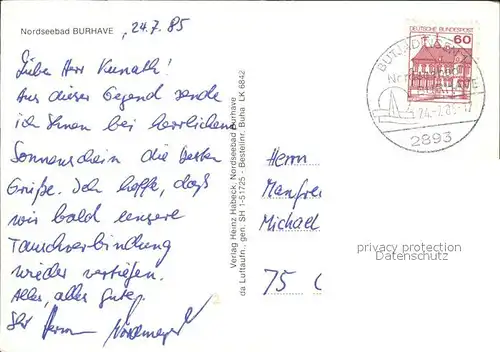 Nordseebad BURHAVE
24.7.85
Lieber Herr Kunath!
Aus dieser Gegend sende
ich Ihnen bei herrlichem
Sonnenschein die besten
Grüße. Ich hoffe, daß
wir bald unsere
Tauschverbindung
wieder vertiefen.
Alles, alles Gute,
Ihr
Verlag Heinz Habeck, Nordseebad Burhave
da Luftaufn., gen. SH 1-51725 - Bestellnr. Buha LK 6842
DEUTSCHE BUNDESPOST
60
BUTJADINGEN
Nordseebad
24.-7.8
2893
Herrn
Manfre
Michael
75
privacy protection
Datenschutz